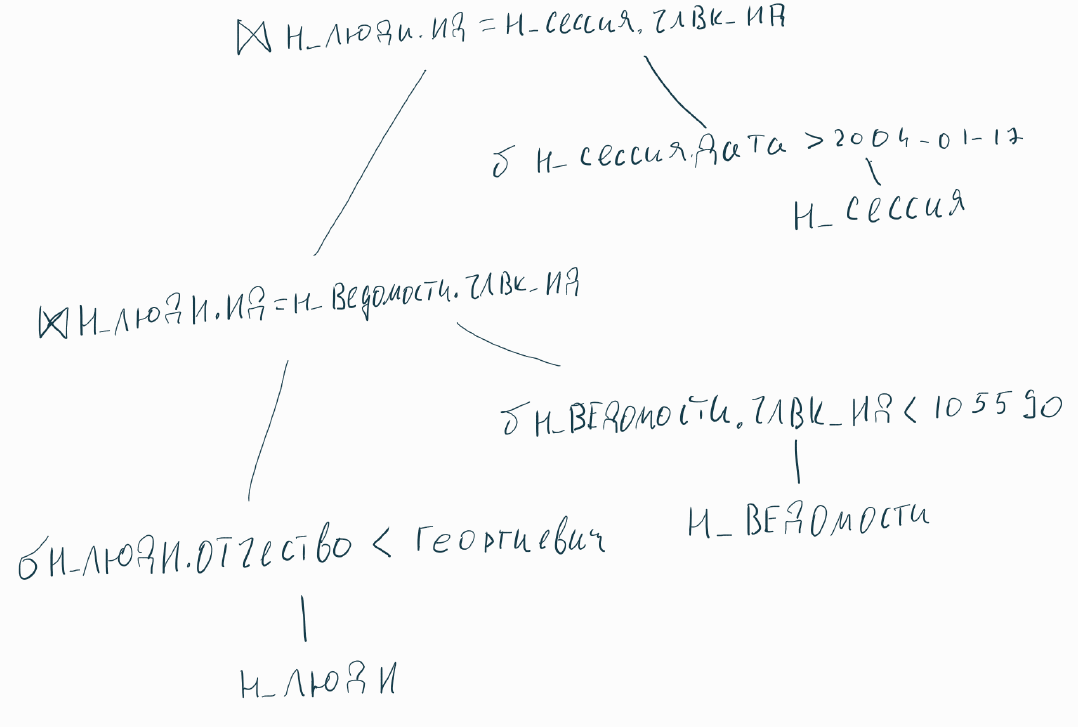 ⋈ Н_люди.ИД = Н_сессия.ЧЛВК_ИД
σ Н_сессия.Дата > 2004-01-17
Н_сессия
⋈ Н_ЛЮДИ.ИД = Н_Ведомости.ЧЛВК_ИД
σ Н_ВЕДОМОСТИ.ЧЛВК_ИД < 105590
Н_ВЕДОМОСТИ
σ Н_ЛЮДИ.ОТЧЕСТВО < Георгиевич
Н_ЛЮДИ